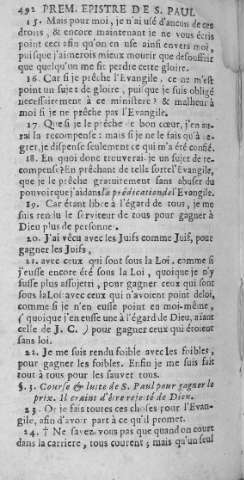 492 PREM. EPISTRE DE S. PAUL
15. Mais pour moi, je n'ai usé d'aucun de ces
droits, & encore maintenant je ne vous écris
point ceci afin qu'on en use ainsi envers moi,
puisque j'aimerois mieux mourir que de souffrir
que quelqu'un me fit perdre cette gloire.
16. Car si je prêche l'Evangile, ce ne m'est
point un sujet de gloire, puisque je suis obligé
necessairement à ce ministére ? & malheur à
moi si je ne prêche pas l'Evangile.
17. Que si je le prêche de bon cœur, j'en au-
rai la recompense : mais si je ne le fais qu'à re-
gret, je dispense seulement ce qui m'a été confié.
18. En quoi donc trouverai-je un sujet de re-
compense ? En prêchant de telle sorte l'Evangile,
que je le prêche gratuitement sans abuser du
pouvoir que j'ai dans la prédication de l'Evangile.
19. Car étant libre à l'égard de tous, je me
suis rendu le serviteur de tous pour gagner à
Dieu plus de personne.
20. J'ai vécu avec les Juifs comme Juif, pour
gagner les Juifs,
21. avec ceux qui sont sous la Loi, comme si
j'eusse encore été sous la Loi, quoique je n'y
fusse plus assujetti, pour gagner ceux qui sont
sous la Loi : avec ceux qui n'avoient point de loi,
comme si je n'en eusse point en moi-même,
( quoique j'en eusse une à l'égard de Dieu, aiant
celle de J. C. ) pour gagner ceux qui étoient
sans loi.
22. Je me suis rendu foible avec les foibles,
pour gagner les foibles. Enfin je me suis fait
tout à tous pour les sauver tous.
§. 3. Course & lutte de S. Paul pour gagner le
prix. Il craint d'être rejetté de Dieu.
23. Or je fais toutes ces choses pour l'Evan-
gile, afin d'avoir part à ce qu'il promet.
24. † Ne savez-vous pas que quand on court
dans la carriere, tous courent ; mais qu'un seul